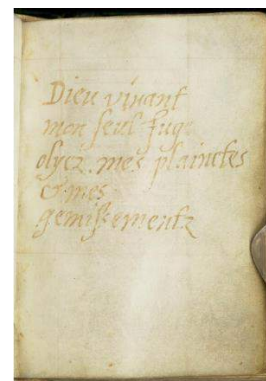 Dieu vivant
mon seul Juge
oÿez mes plainctes
& mes
gemissementz